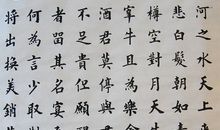 河之水天上來
悲白髮朝如
樽空對月天生
宰牛且為樂會
酒君莫停與君
不足貴但願
者留其名宴
何為言少取
將出換美銷